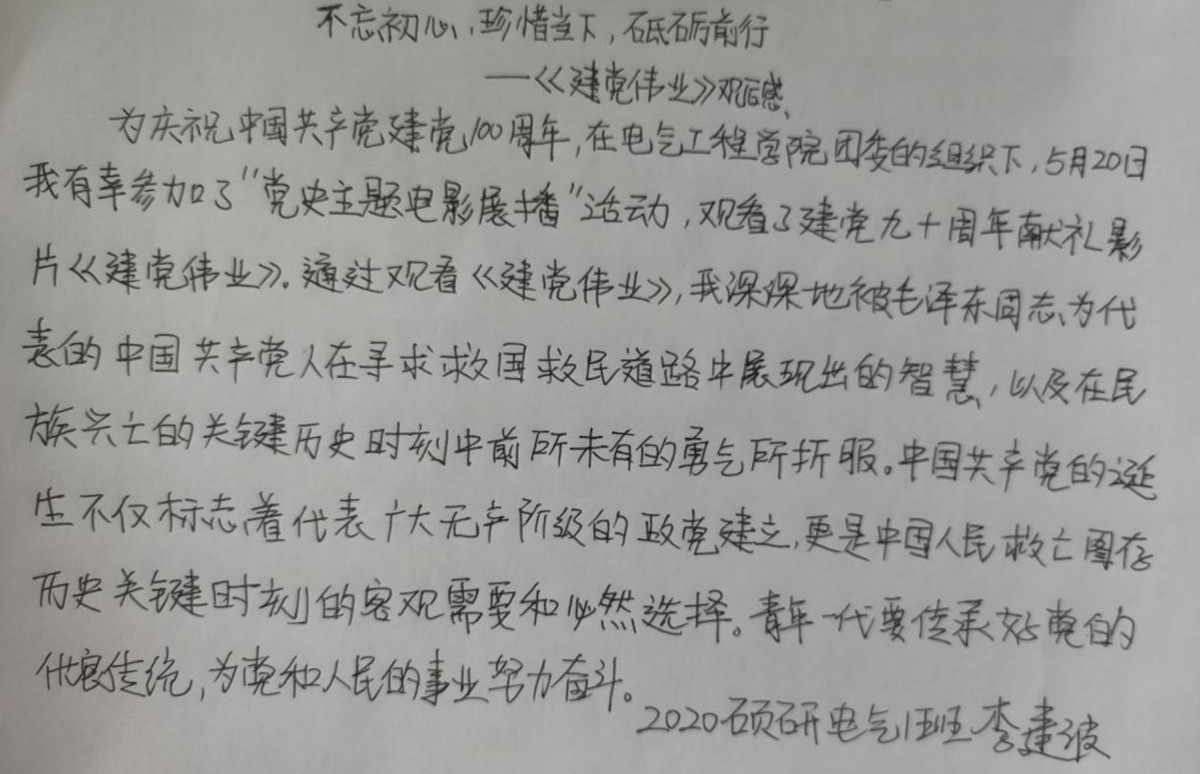 不忘初心,珍惜当下,砥砺前行
—《建党伟业》观后感
为庆祝中国共产党建党100周年,在电气工程学院团委的组织下,5月20日
我有幸参加了"党史主题电影展播"活动,观看了建党九十周年献礼影
片《建党伟业》。通过观看《建党伟业》,我深深地被毛泽东同志为代
表的中国共产党人在寻求救国救民道路中展现出的智慧,以及在民
族兴亡的关键历史时刻中前所未有的勇气所折服。中国共产党的诞
生不仅标志着代表广大无产阶级的政党建立,更是中国人民救亡图存
历史关键时刻的客观需要和必然选择。青年一代要传承好党的
优良传统,为党和人民的事业努力奋斗。
2020硕研电气1班 李建波